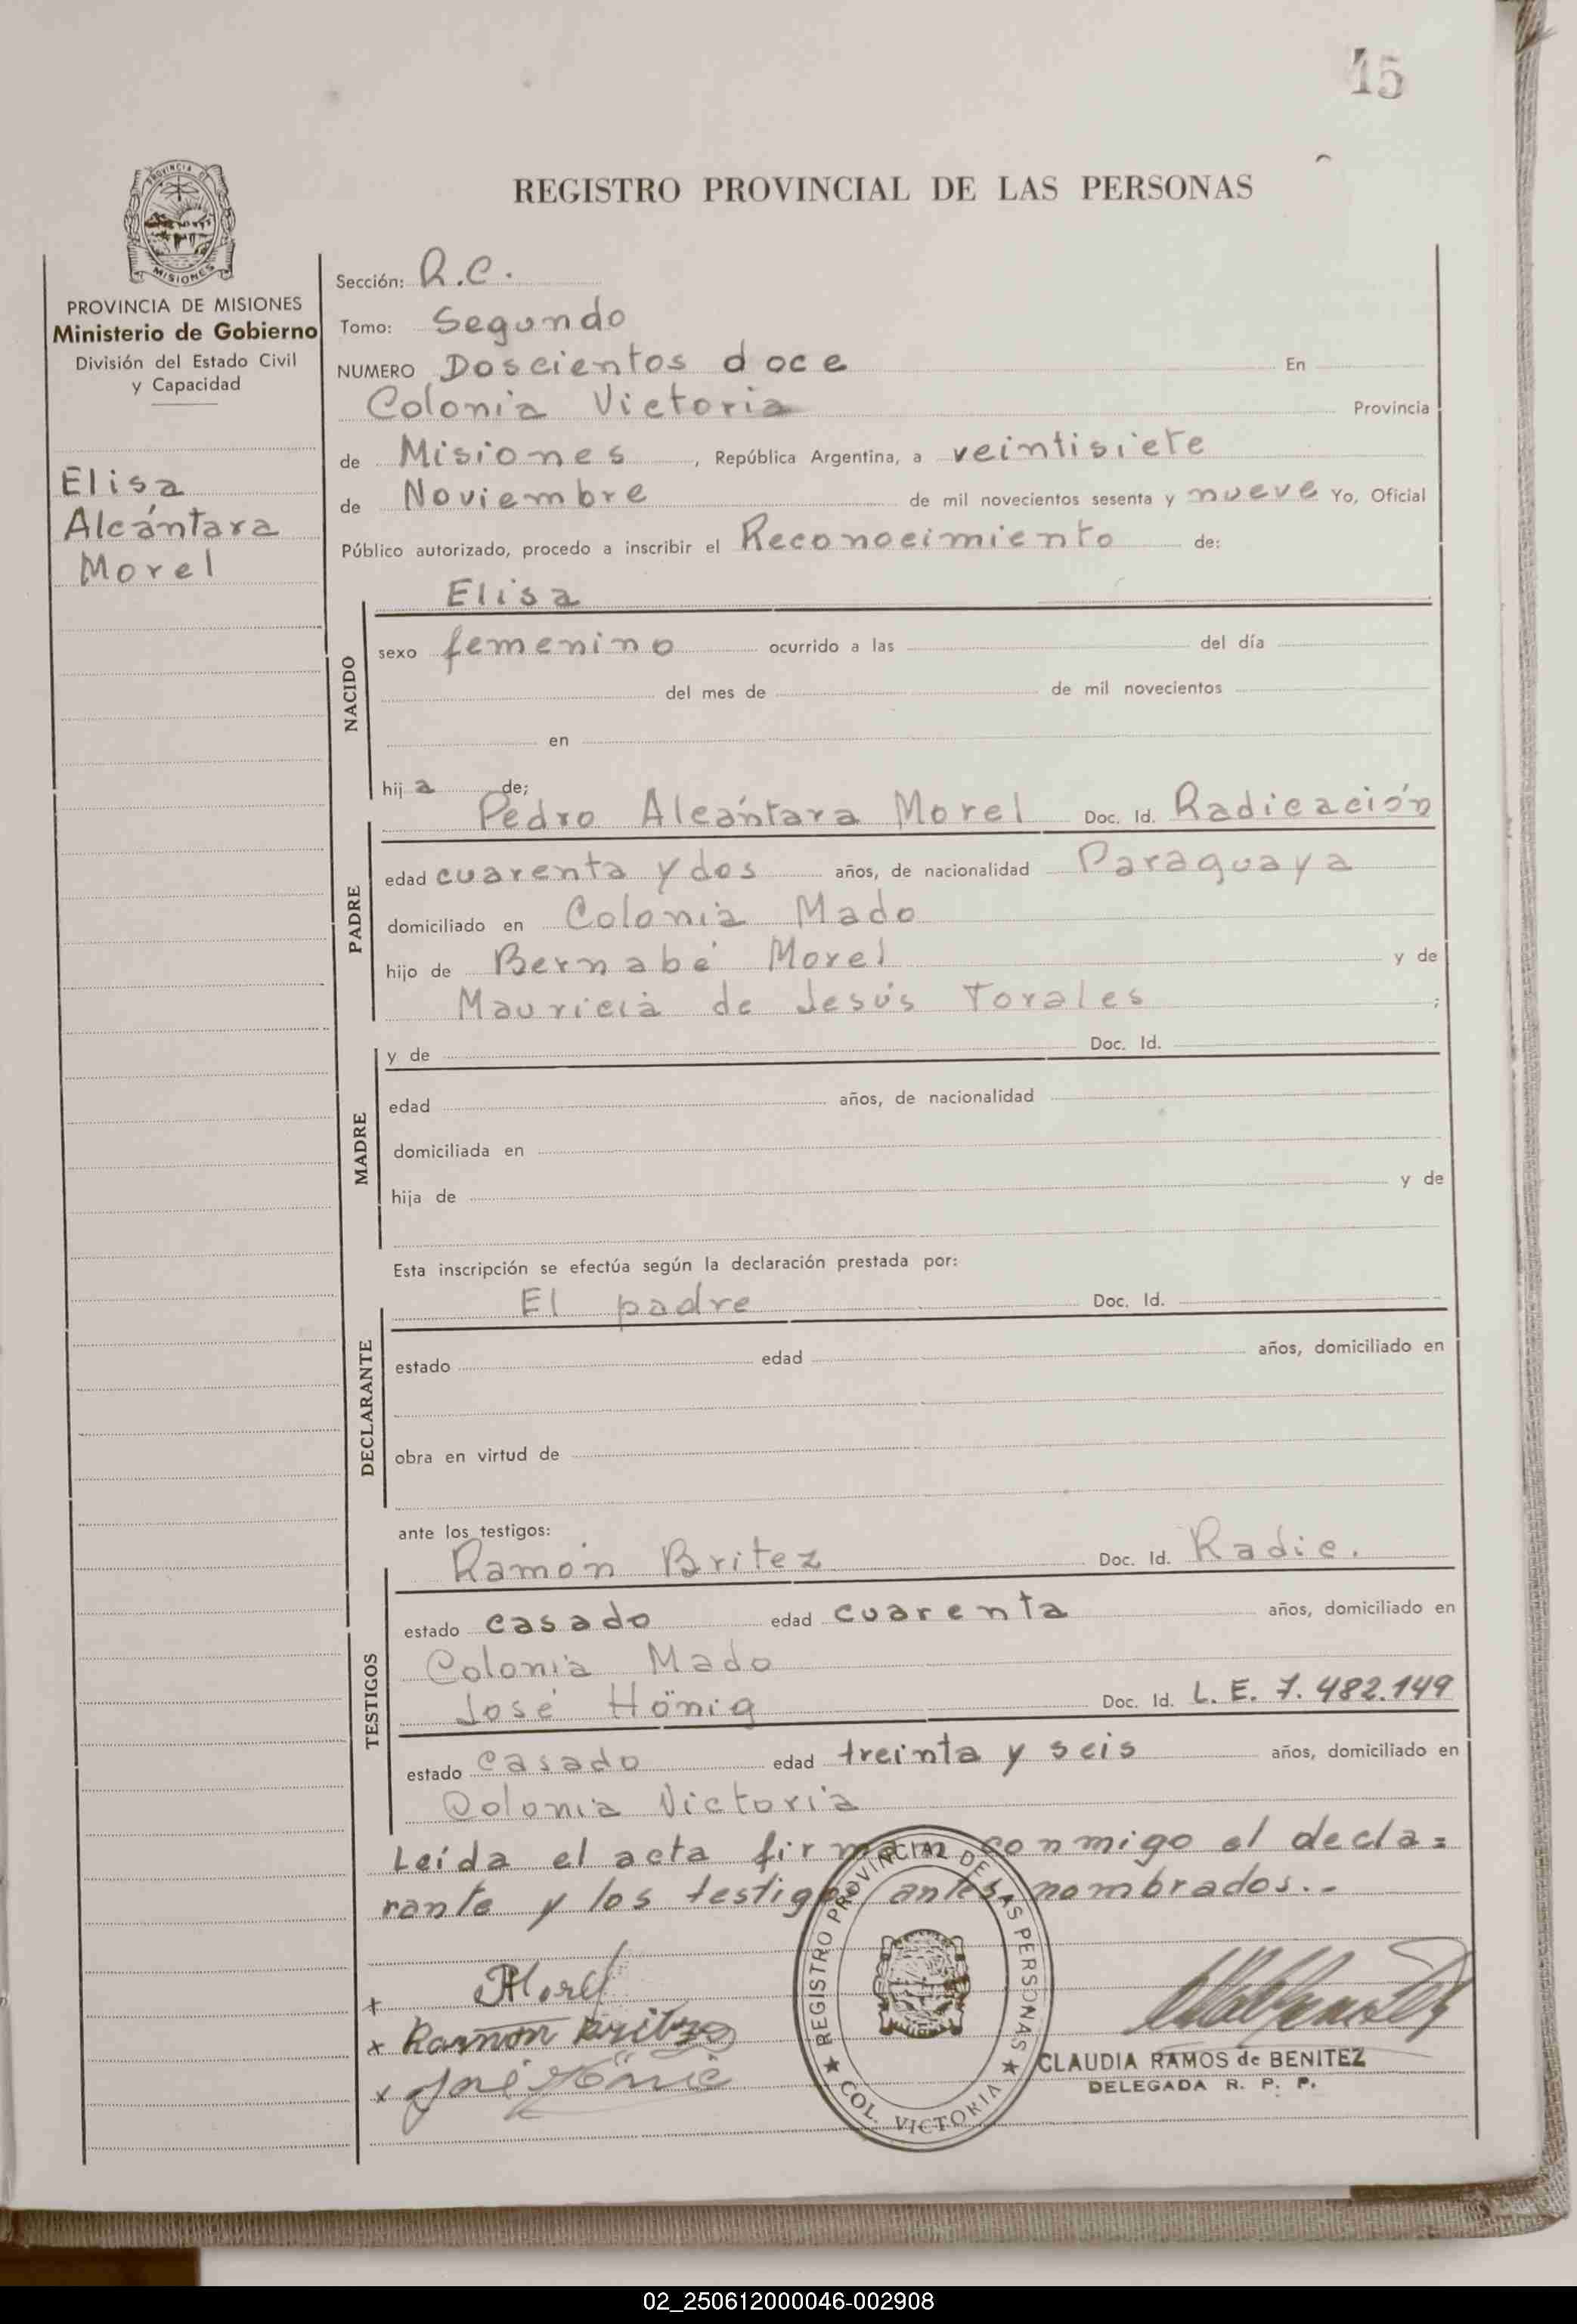 15
REGISTRO PROVINCIAL DE LAS PERSONAS
PROVINCIA DE MISIONES
PROVINCIA DE MISIONES
Ministerio de Gobierno
División del Estado Civil
y Capacidad
Elisa
Alcántara
Morel
Sección: R.C.
Tomo: Segundo
NUMERO Doscientos doce En
Colonia Victoria Provincia
de Misiones, República Argentina, a veintisiete
de Noviembre de mil novecientos sesenta y nueve Yo, Oficial
Público autorizado, procedo a inscribir el Reconocimiento de:
NACIDO
Elisa
sexo femenino ocurrido a las del día
del mes de de mil novecientos
en
hija de;
PADRE
Pedro Alcántara Morel Doc. Id. Radicación
edad cuarenta y dos años, de nacionalidad Paraguaya
domiciliado en Colonia Mado
hijo de Bernabé Morel y de
Mauricia de Jesús Torales ;
MADRE
y de Doc. Id.
edad años, de nacionalidad
domiciliada en
hija de y de
Esta inscripción se efectúa según la declaración prestada por:
DECLARANTE
El padre Doc. Id.
estado edad años, domiciliado en
obra en virtud de
ante los testigos:
TESTIGOS
Ramón Britez Doc. Id. Radic.
estado casado edad cuarenta años, domiciliado en
Colonia Mado
José Hönig Doc. Id. L. E. 7.482.149
estado casado edad treinta y seis años, domiciliado en
Colonia Victoria
Leída el acta firman conmigo el decla=
rante y los testigos antes nombrados.-
x PMorel
x Ramon Britez
x José Hönig
REGISTRO PROVINCIAL DE LAS PERSONAS
COL. VICTORIA
CLAUDIA RAMOS de BENITEZ
DELEGADA R. P. P.
02_250612000046-002908